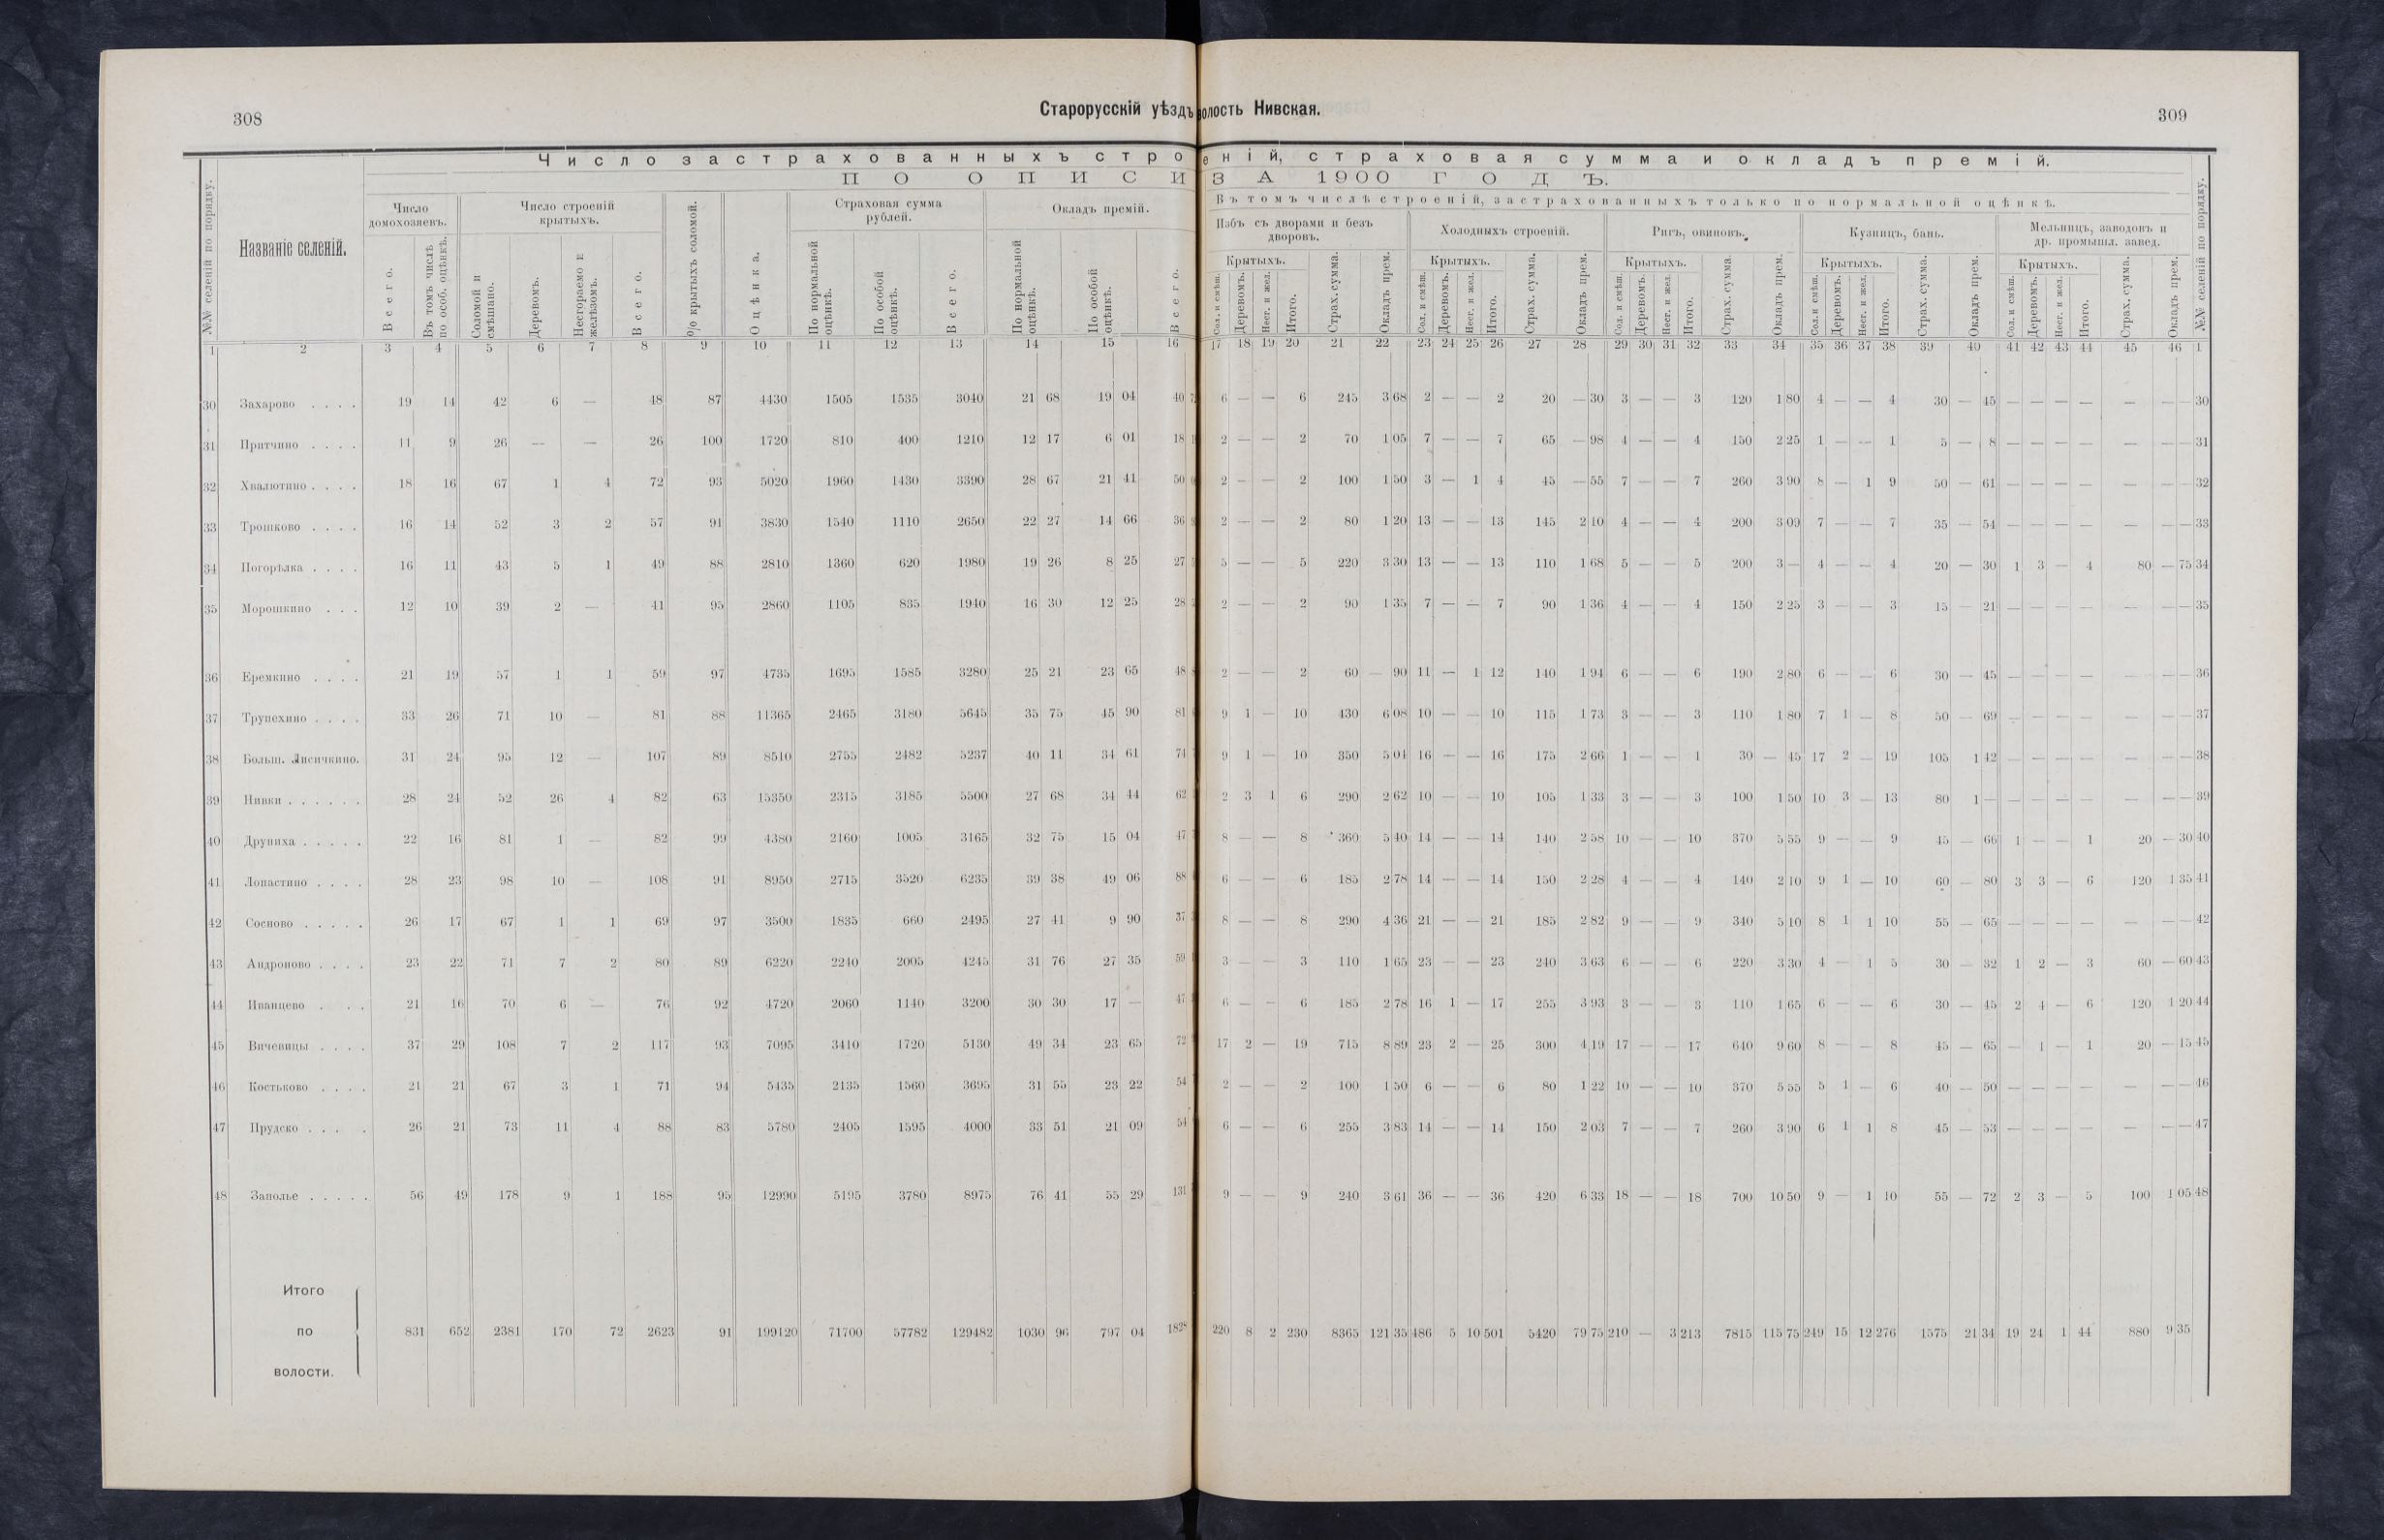 308
Старорусскій уѣздъ
волость Нивская.
309
Число застрахованныхъ строеній, страховая сумма и окладъ премій.
ПО ОПИСИ ЗА 1900 ГОДЪ.
№№ селеній по порядку.
Названіе селеній.
Число домохозяевъ.
Всего.
Въ томъ числѣ по особ. оцѣнкѣ.
Число строеній крытыхъ.
Соломой и смѣшано.
Деревомъ.
Несгораемо и желѣзомъ.
Всего.
% крытыхъ соломой.
Оцѣнка.
Страховая сумма рублей.
По нормальной оцѣнкѣ.
По особой оцѣнкѣ.
Всего.
Окладъ премій.
По нормальной оцѣнкѣ.
По особой оцѣнкѣ.
Всего.
Въ томъ числѣ строеній, застрахованныхъ только по нормальной оцѣнкѣ.
Избъ съ дворами и безъ дворовъ.
Крытыхъ.
Сол. и смѣш.
Деревомъ.
Несг. и жел.
Итого.
Страх. сумма.
Окладъ прем.
Холодныхъ строеній.
Крытыхъ.
Сол. и смѣш.
Деревомъ.
Несг. и жел.
Итого.
Страх. сумма.
Окладъ прем.
Ригъ, овиновъ.
Крытыхъ.
Сол. и смѣш.
Деревомъ.
Несг. и жел
Итого.
Страх. сумма.
Окладъ прем.
Кузницъ, бань.
Крытыхъ.
Сол. и смѣш.
Деревомъ.
Несг. и жел.
Итого.
Страх. сумма.
Окладъ прем.
Мельницъ, заводовъ и др. промышл. завед.
Крытыхъ.
Сол. и смѣш.
Деревомъ.
Несг. и жел.
Итого.
Страх. сумма.
Окладъ прем.
№№ селеній по порядку.
1 2 3 4 5 6 7 8 9 10 11 12 13 14 15 16 17 18 19 20 21 22 23 24 25 26 27 28 29 30 31 32 33 34 35 36 37 38 39 40 41 42 43 44 45 46 1
30 Захарово . . . . 19 14 42 6 — 48 87 4430 1505 1535 3040 21 68 19 04 40 6 — — 6 245 3 68 2 — — 2 20 — 30 3 — — 3 120 1 80 4 — — 4 30 — 45 — — — — — — — 30
31 Притчино . . . . 11 9 26 — — 26 100 1720 810 400 1210 12 17 6 01 18 2 — — 2 70 1 05 7 — — 7 65 — 98 4 — — 4 150 2 25 1 — — 1 5 — 8 — — — — — — — 31
32 Хвалютино . . . . 18 16 67 1 4 72 93 5020 1960 1430 3390 28 67 21 41 50 2 — — 2 100 1 50 3 — 1 4 45 — 55 7 — — 7 260 3 90 8 — 1 9 50 — 61 — — — — — — — 32
33 Трошково . . . . 16 14 52 3 2 57 91 3830 1540 1110 2650 22 27 14 66 36 2 — — 2 80 1 20 13 — — 13 145 2 10 4 — — 4 200 3 09 7 — — 7 35 — 54 — — — — — — — 33
34 Погорѣлка . . . . 16 11 43 5 1 49 88 2810 1360 620 1980 19 26 8 25 27 5 — — 5 220 3 30 13 — — 13 110 1 68 5 — — 5 200 3 — 4 — — 4 20 — 30 1 3 — 4 80 — 75 34
35 Морошкино . . . 12 10 39 2 — 41 95 2860 1105 835 1940 16 30 12 25 28 2 — — 2 90 1 35 7 — — 7 90 1 36 4 — — 4 150 2 25 3 — — 3 15 — 21 — — — — — — — 35
36 Еремкино . . . . 21 19 57 1 1 59 97 4735 1695 1585 3280 25 21 23 65 48 2 — — 2 60 — 90 11 — 1 12 140 1 94 6 — — 6 190 2 80 6 — — 6 30 — 45 — — — — — — — 36
37 Трупехино . . . . 33 26 71 10 — 81 88 11365 2465 3180 5645 35 75 45 90 81 9 1 — 10 430 6 08 10 — — 10 115 1 73 3 — — 3 110 1 80 7 1 — 8 50 — 69 — — — — — — — 37
38 Больш. Лисичкино. 31 24 95 12 — 107 89 8510 2755 2482 5237 40 11 34 61 74 9 1 — 10 350 5 04 16 — — 16 175 2 66 1 — — 1 30 — 45 17 2 — 19 105 1 42 — — — — — — — 38
39 Нивки . . . . . . 28 24 52 26 4 82 63 15350 2315 3185 5500 27 68 34 44 62 2 3 1 6 290 2 62 10 — — 10 105 1 33 3 — — 3 100 1 50 10 3 — 13 80 1 — — — — — — — — 39
40 Друниха . . . . . 22 16 81 1 — 82 99 4380 2160 1005 3165 32 75 15 04 47 8 — — 8 360 5 40 14 — — 14 140 2 58 10 — — 10 370 5 55 9 — — 9 45 — 66 1 — — 1 20 — 30 40
41 Лопастино . . . . 28 23 98 10 — 108 91 8950 2715 3520 6235 39 38 49 06 88 6 — — 6 185 2 78 14 — — 14 150 2 28 4 — — 4 140 2 10 9 1 — 10 60 — 80 3 3 — 6 120 1 35 41
42 Сосново . . . . . 26 17 67 1 1 69 97 3500 1835 660 2495 27 41 9 90 37 8 — — 8 290 4 36 21 — — 21 185 2 82 9 — — 9 340 5 10 8 1 1 10 55 — 65 — — — — — — — 42
43 Андроново . . . . 23 22 71 7 2 80 89 6220 2240 2005 4245 31 76 27 35 59 3 — — 3 110 1 65 23 — — 23 240 3 63 6 — — 6 220 3 30 4 — 1 5 30 — 32 1 2 — 3 60 — 60 43
44 Иванцево . . . 21 16 70 6 — 76 92 4720 2060 1140 3200 30 30 17 — 47 6 — — 6 185 2 78 16 1 — 17 255 3 93 3 — — 3 110 1 65 6 — — 6 30 — 45 2 4 — 6 120 1 20 44
45 Вичевицы . . . . 37 29 108 7 2 117 93 7095 3410 1720 5130 49 34 23 65 72 17 2 — 19 715 8 89 23 2 — 25 300 4 19 17 — — 17 640 9 60 8 — — 8 45 — 65 — 1 — 1 20 — 15 45
46 Костьково . . . . 21 21 67 3 1 71 94 5435 2135 1560 3695 31 55 23 22 54 2 — — 2 100 1 50 6 — — 6 80 1 22 10 — — 10 370 5 55 5 1 — 6 40 — 50 — — — — — — — 46
47 Прудско . . . . 26 21 73 11 4 88 83 5780 2405 1595 4000 33 51 21 09 54 6 — — 6 255 3 83 14 — — 14 150 2 03 7 — — 7 260 3 90 6 1 1 8 45 — 53 — — — — — — — 47
48 Заполье . . . . . 56 49 178 9 1 188 95 12990 5195 3780 8975 76 41 55 29 131 9 — — 9 240 3 61 36 — — 36 420 6 33 18 — — 18 700 10 50 9 — 1 10 55 — 72 2 3 — 5 100 1 05 48
Итого
по 831 652 2381 170 72 2623 91 199120 71700 57782 129482 1030 96 797 04 1828 220 8 2 230 8365 121 35 486 5 10 501 5420 79 75 210 — 3 213 7815 115 75 249 15 12 276 1575 21 34 19 24 1 44 880 9 35
волости.